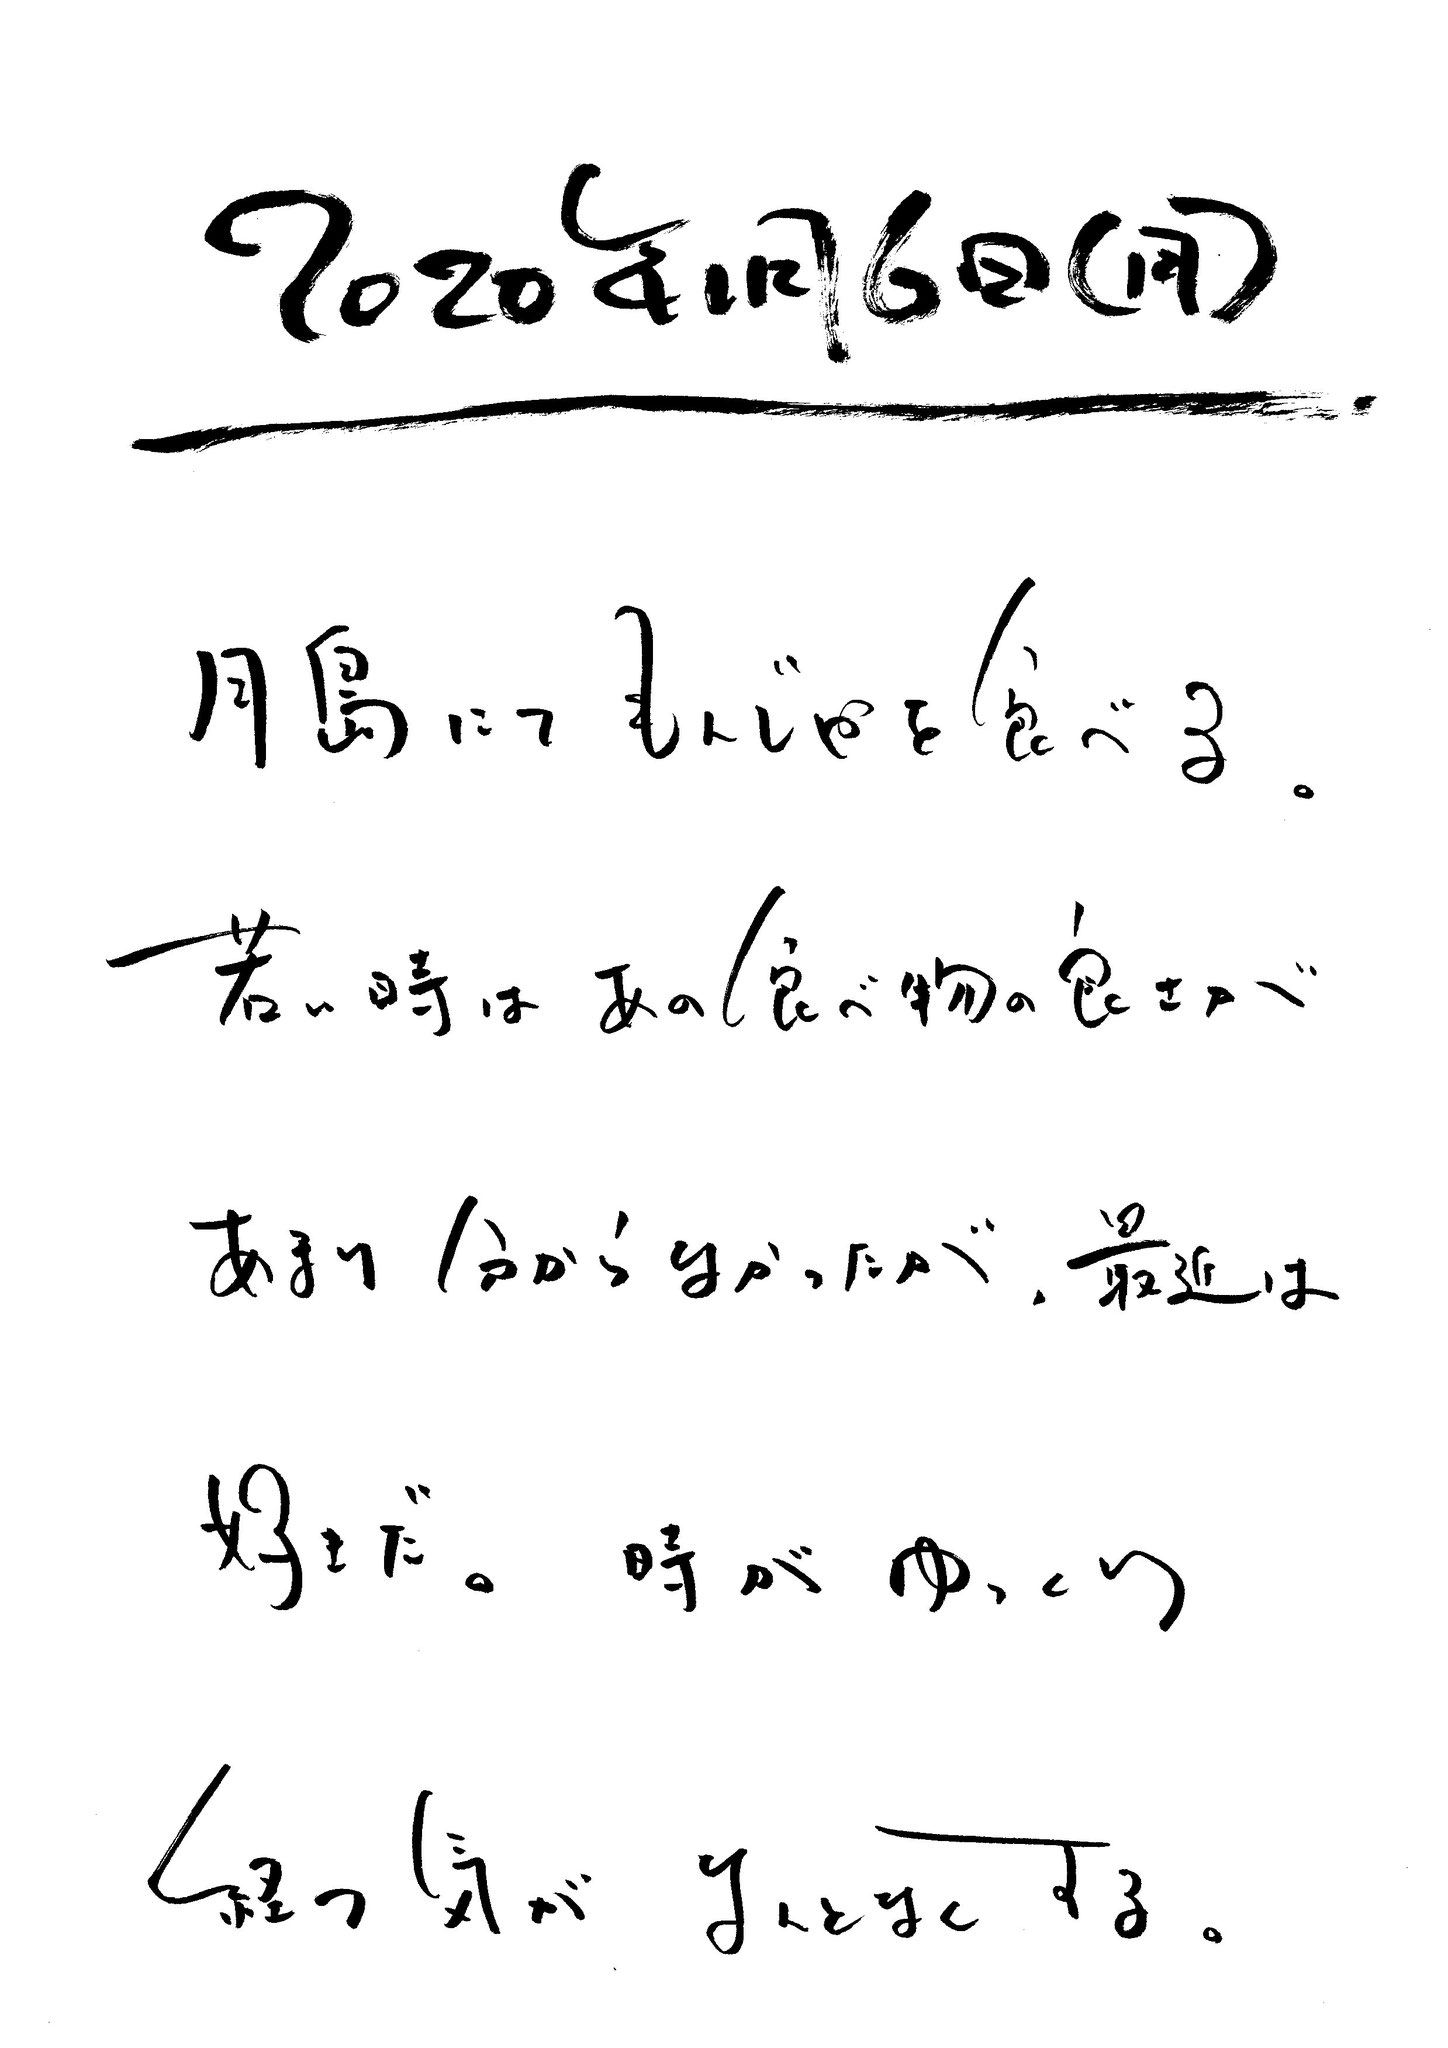 2020年1月6日(月)
月島にてもんじゃを食べる。
若い時はあの食べ物の良さが
あまり分からなかったが、最近は
好きだ。時がゆっくり
経つ気がなんとなくする。